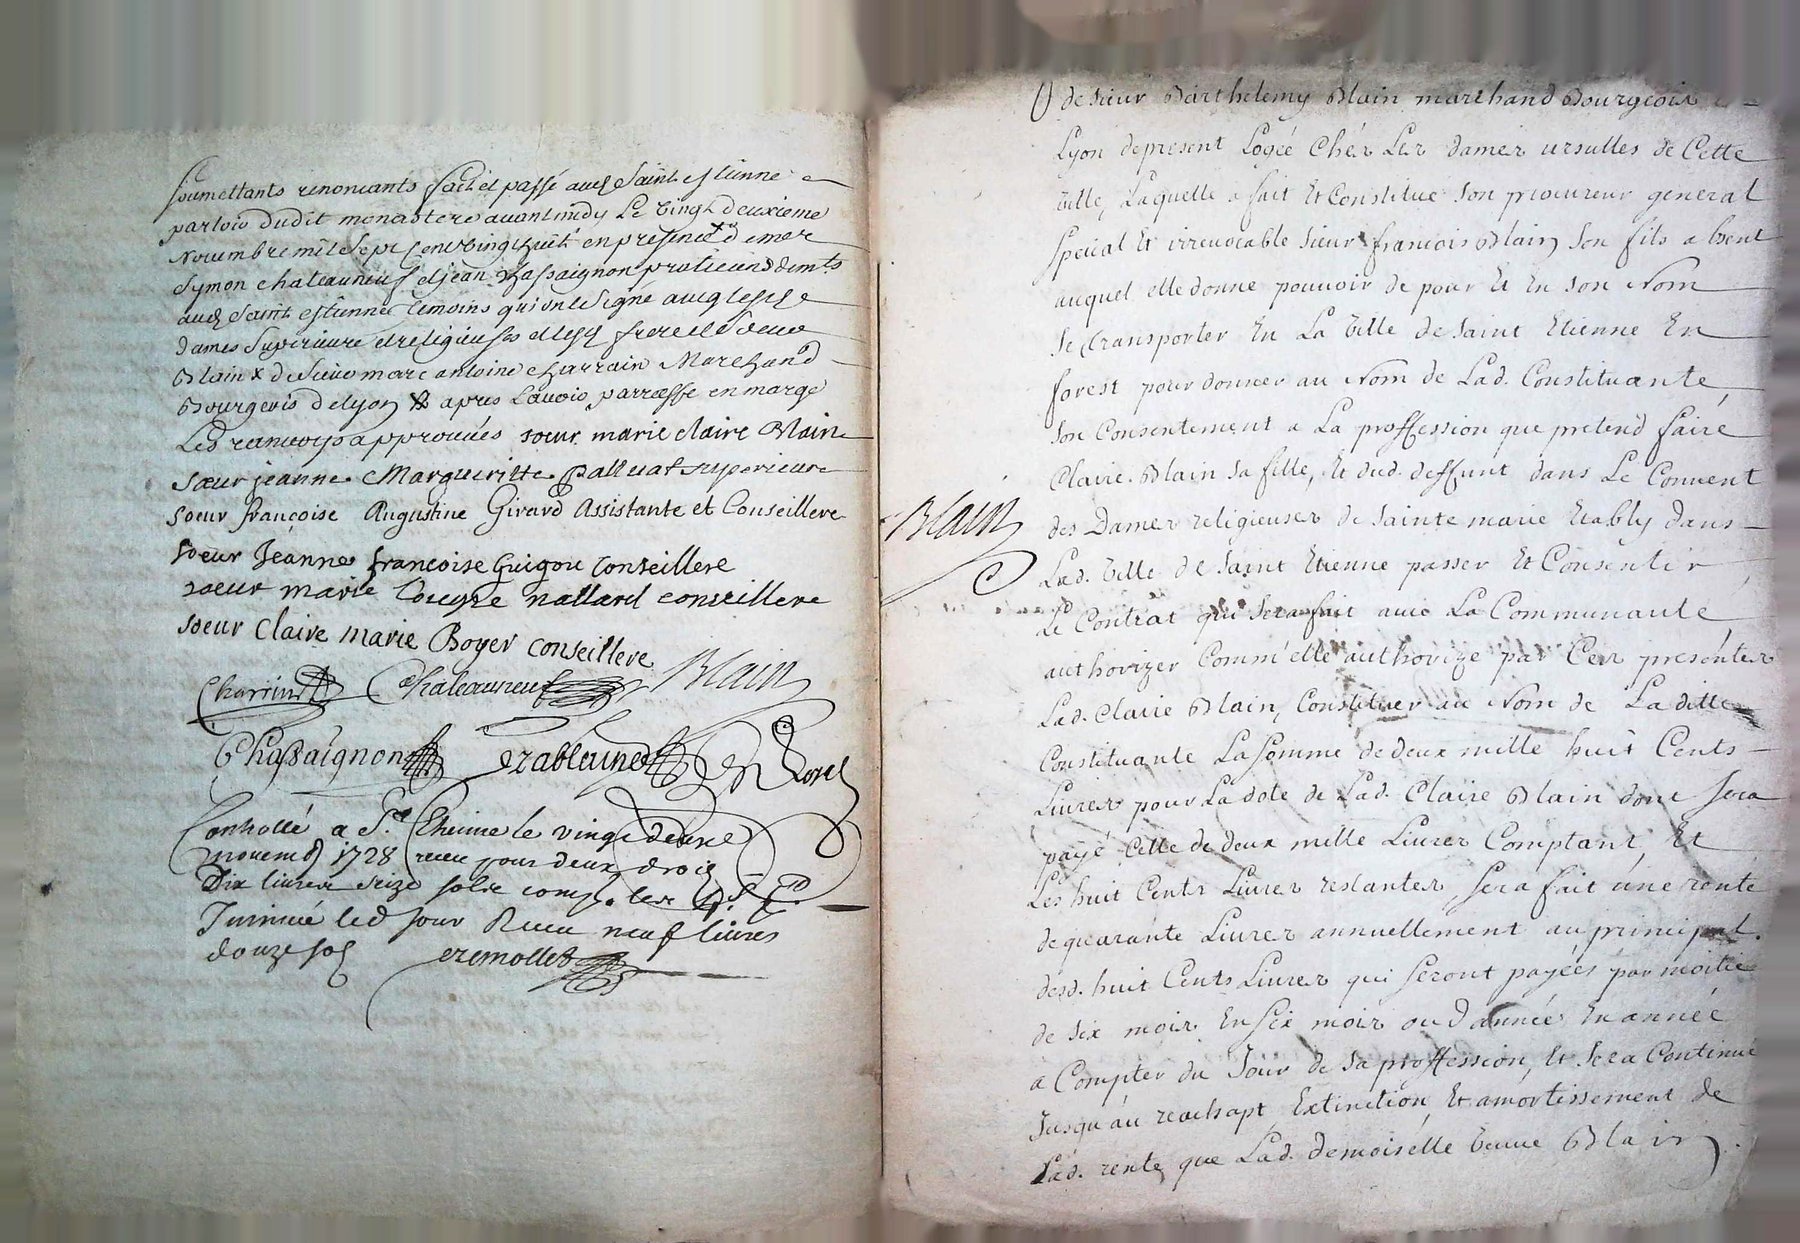 soumettants renoncants fait et passé aud Saint estienne
parloir dudit monastere avant midy Le vingt deuxieme
Novembre mil sept cent vingt huit en presence de
Symon chateauneuf et jean chassaignon praticiens demts
aud Saint estienne temoins qui ont signé avec lesd
dames Superieure et religieuses et led frere et Sieur
Blain x de Sieur marc antoine charrain Marchand
Bourgeois de Lyon x apres L'avoir parraffé en marge
Les renvoys approuvés soeur marie claire Blain
sœur jeanne Margueritte palluat superieure
soeur françoise Augustine Girard Assistante et Conseillere
soeur Jeanne françoise Guigou Conseillere
soeur marie nallard conseillere
soeur Claire marie Boyer conseillere
Charrin Chateauneuf Blain
Chassaignon
Controllé a St Etienne le vingt deux
novemb 1728 receu pour deux drois
Dix livres seize sols compr. les
Insinué led jour Receu neuf livres
douze sol
Blain
de sieur Barthelemy Blain marchand Bourgeois
Lyon depresent Logée Chés Les dames ursulles de Cette
ville, Laquelle a fait Et Constitué son procureur general
special Et irrevocable sieur françois Blain son fils absent
auquel elle donne pouvoir de pour Et En son Nom
se transporter En La Ville de Saint Etienne En
forest pour donner au Nom de Lad. Constituante
son Consentement a La proffession que pretend faire
Claire Blain sa fille, Et dud. deffunt dans Le Couvent
des Dames religieuses de Sainte marie Etably dans
Lad. Ville de Saint Etienne passer Et Consentir
Le Contrat qui sera fait avec La Communauté
authorizer Comm'elle authorize par Ces presentes
Lad. Claire Blain, Constituer au Nom de La ditte
Constituante La somme de deux mille huit Cents
Livres pour La dote de Lad. Claire Blain dont sera
payé Celle de deux mille Livres Comptant, Et
Les huit Cents Livres restantes, sera fait une rente
de quarante Livres annuellement au principal
desd. huit Cents Livres qui seront payées par moitié
de six mois En six mois ou d'année En année
a Compter du Jour de sa proffession, Et sera Continué
Jusqu'au reachapt Extinction, Et amortissement de
Lad. rente que Lad. demoiselle veuve Blain